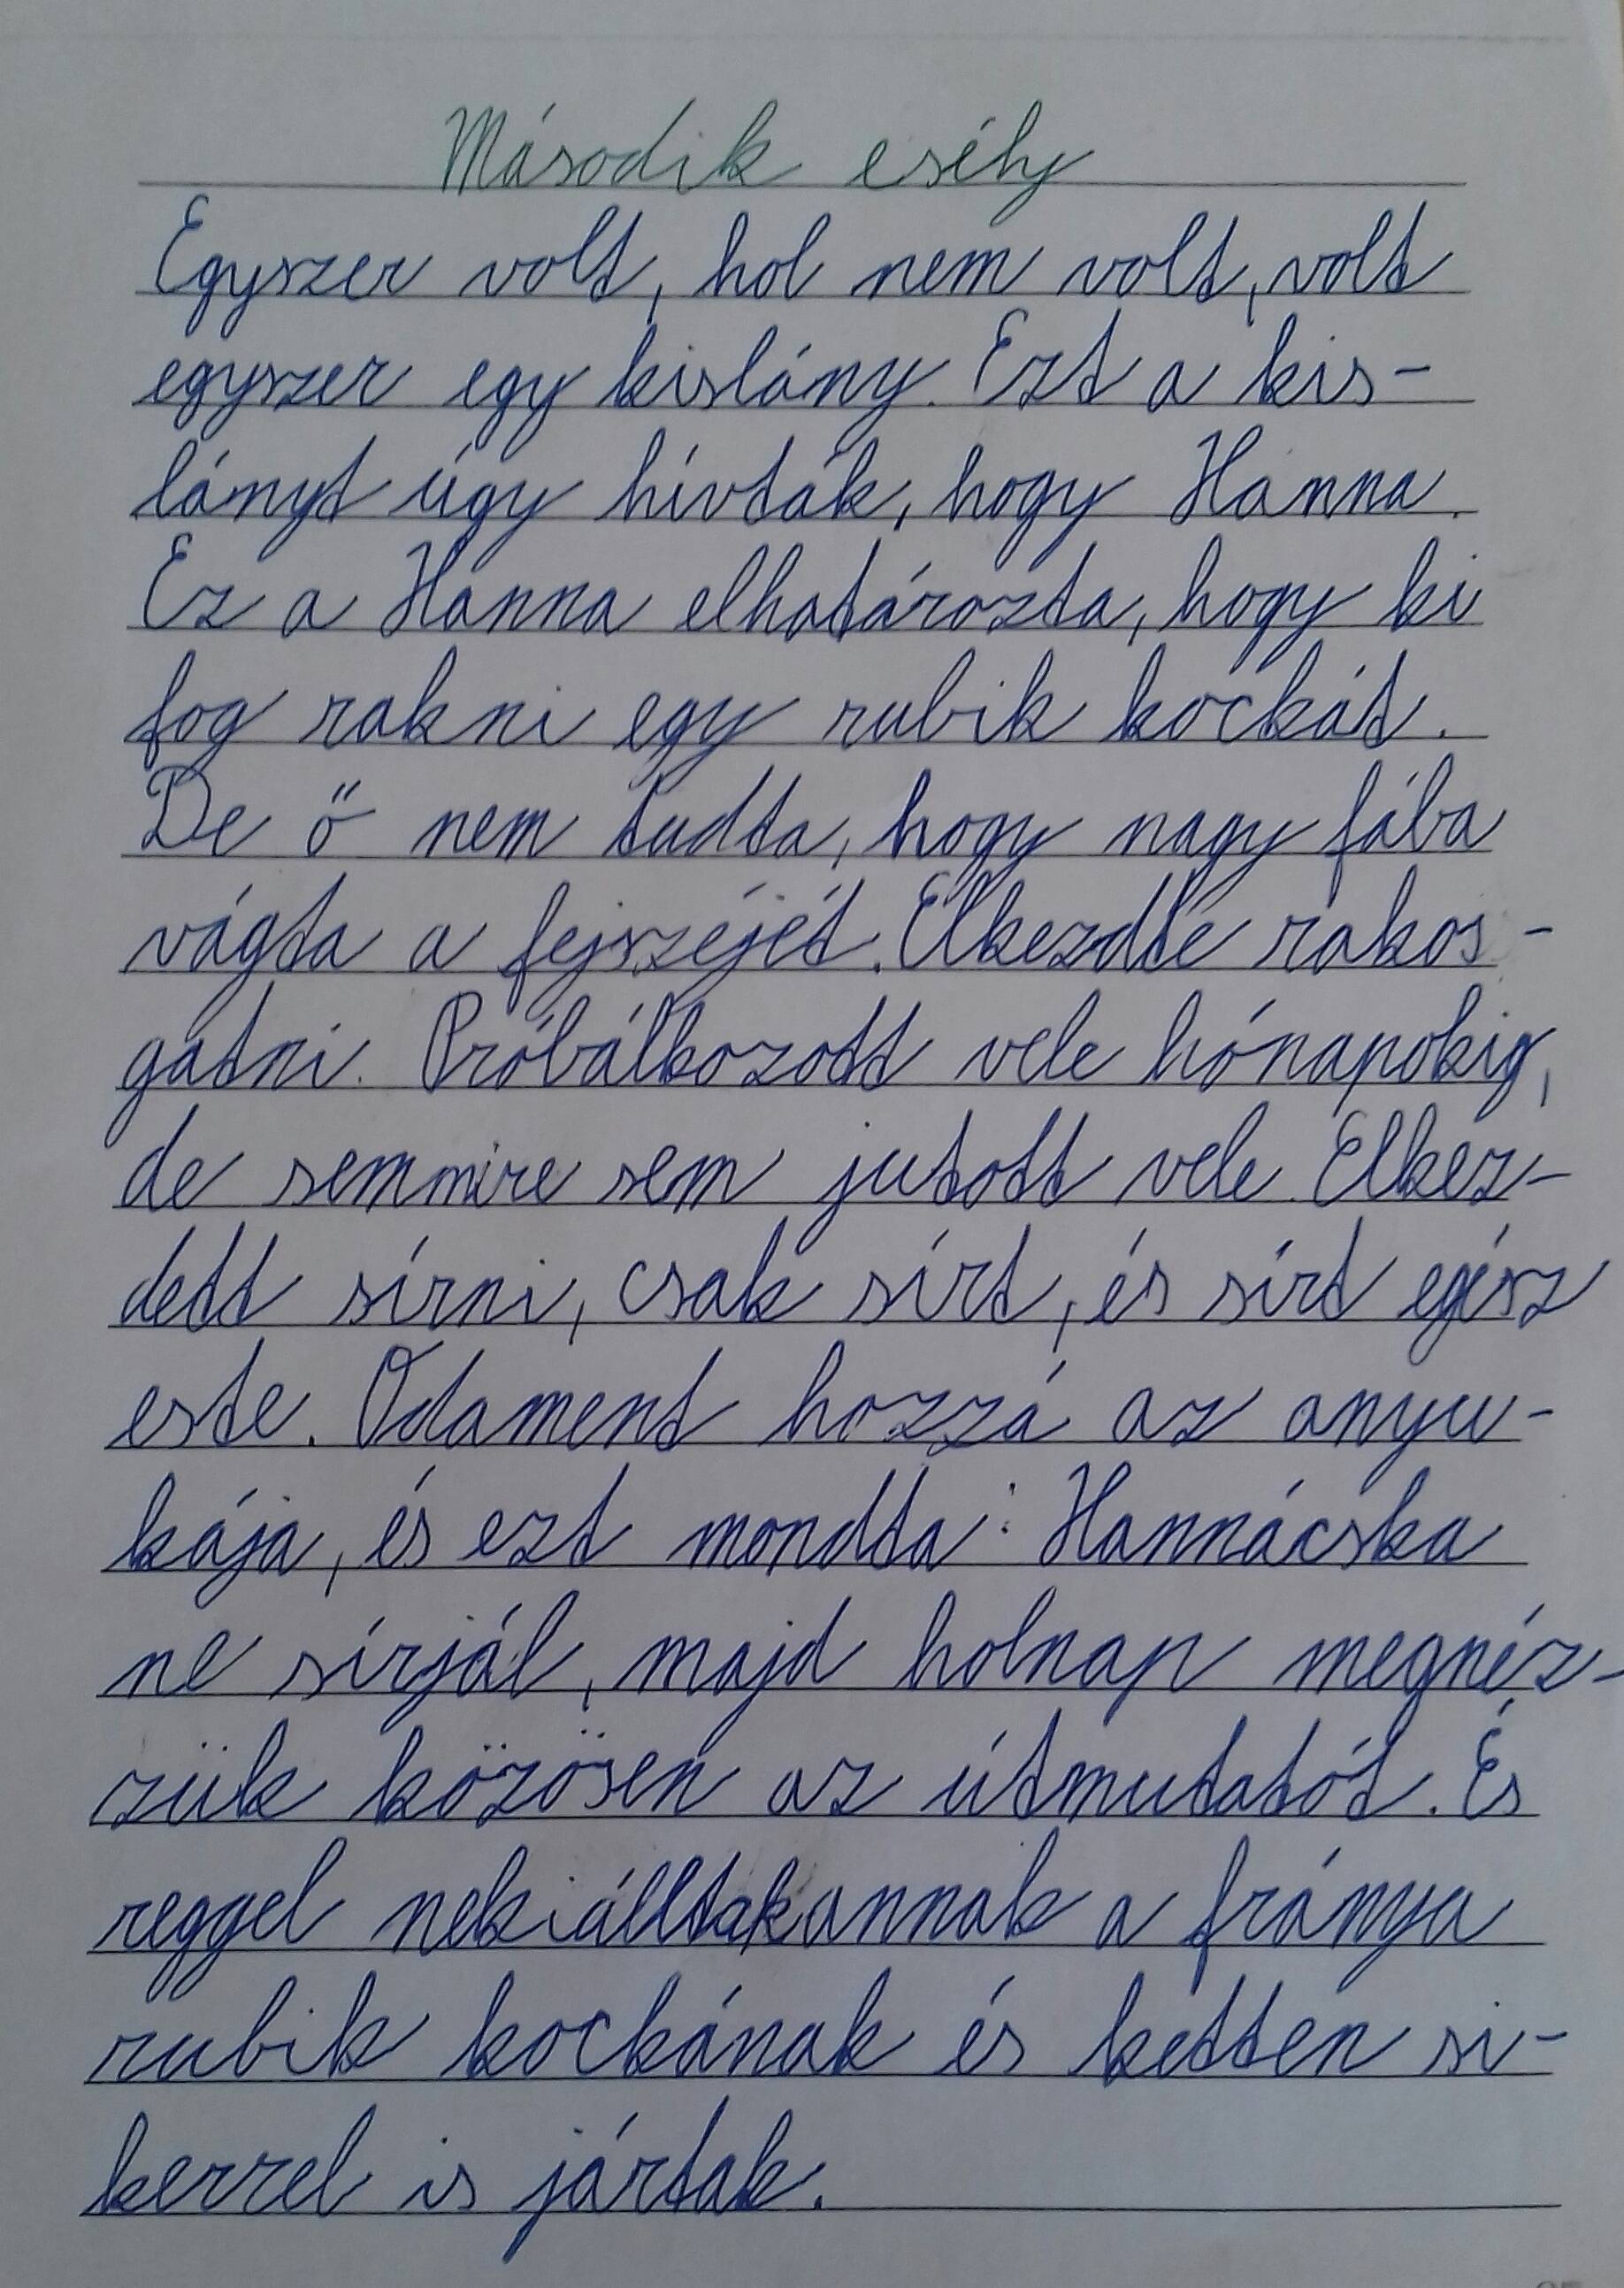 Második esély
Egyszer volt, hol nem volt, volt
egyszer egy kislány. Ezt a kis-
lányt úgy hívták, hogy Hanna.
Ez a Hanna elhatározta, hogy ki
fog rakni egy rubik kockát.
De ő nem tudta, hogy nagy fába
vágta a fejszéjét. Elkezdte rakos-
gatni. Próbálkozott vele hónapokig,
de semmire sem jutott vele. Elkez-
dett sírni, csak sírt, és sírt egész
este. Odament hozzá az anyu-
kája, és ezt mondta: Hannácska
ne sírjál, majd holnap megnéz-
zük közösen az útmutatót. És
reggel nekiálltak annak a fránya
rubik kockának és ketten si-
kerrel is jártak.